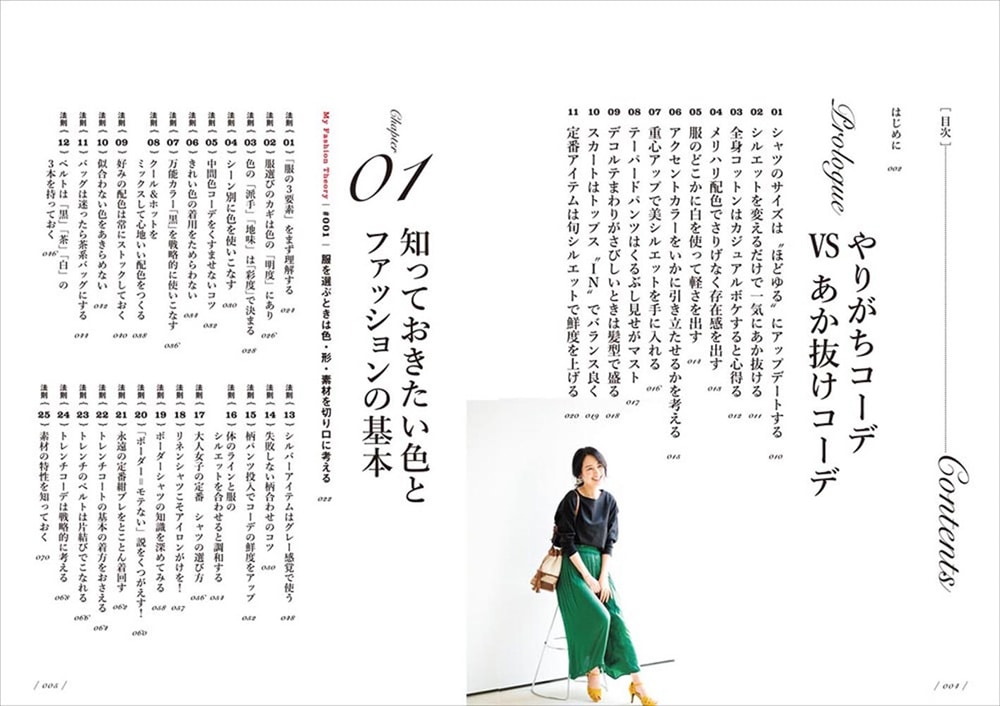 [目次]
Contents
はじめに 002
Prologue
やりがちコーデ
VS あか抜けコーデ
01 シャツのサイズは〝ほどゆる〟にアップデートする 010
02 シルエットを変えるだけで一気にあか抜ける 011
03 全身コットンはカジュアルボケすると心得る 012
04 メリハリ配色でさりげなく存在感を出す 013
05 服のどこかに白を使って軽さを出す 014
06 アクセントカラーをいかに引き立たせるかを考える 015
07 重心アップで美シルエットを手に入れる 016
08 テーパードパンツはくるぶし見せがマスト 017
09 デコルテまわりがさびしいときは髪型で盛る 018
10 スカートはトップス〝IN〟でバランス良く 019
11 定番アイテムは旬シルエットで鮮度を上げる 020
/ 004 /
Chapter
01
知っておきたい色と
ファッションの基本
My Fashion Theory | #001 | 服を選ぶときは色・形・素材を切り口に考える 022
法則 01 「服の3要素」をまず理解する 024
法則 02 服選びのカギは色の「明度」にあり 026
法則 03 色の「派手」「地味」は「彩度」で決まる 028
法則 04 シーン別に色を使いこなす 030
法則 05 中間色コーデをくすませないコツ 032
法則 06 きれい色の着用をためらわない 034
法則 07 万能カラー「黒」を戦略的に使いこなす 036
法則 08 クール&ホットを
ミックスして心地いい配色をつくる 038
法則 09 好みの配色は常にストックしておく 040
法則 10 似合わない色をあきらめない 042
法則 11 バッグは迷ったら茶系バッグにする 044
法則 12 ベルトは「黒」「茶」「白」の
3本を持っておく 046
法則 13 シルバーアイテムはグレー感覚で使う 048
法則 14 失敗しない柄合わせのコツ 050
法則 15 柄パンツ投入でコーデの鮮度をアップ 052
法則 16 体のラインと服の
シルエットを合わせると調和する 054
法則 17 大人女子の定番 シャツの選び方 056
法則 18 リネンシャツこそアイロンがけを! 057
法則 19 ボーダーシャツの知識を深めてみる 058
法則 20 「ボーダー=モテない」説をくつがえす! 060
法則 21 永遠の定番紺ブレをとことん着回す 062
法則 22 トレンチコートの基本の着方をおさえる 064
法則 23 トレンチのベルトは片結びでこなれる 066
法則 24 トレンチコーデは戦略的に考える 068
法則 25 素材の特性を知っておく 070
/ 005 /